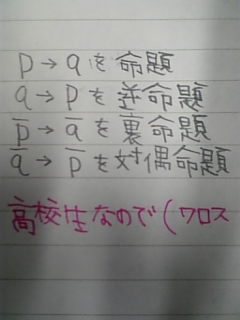 p→qを命題
q→pを逆命題
p̅→q̅を裏命題
q̅→p̅を対偶命題
高校生なので(ワロス